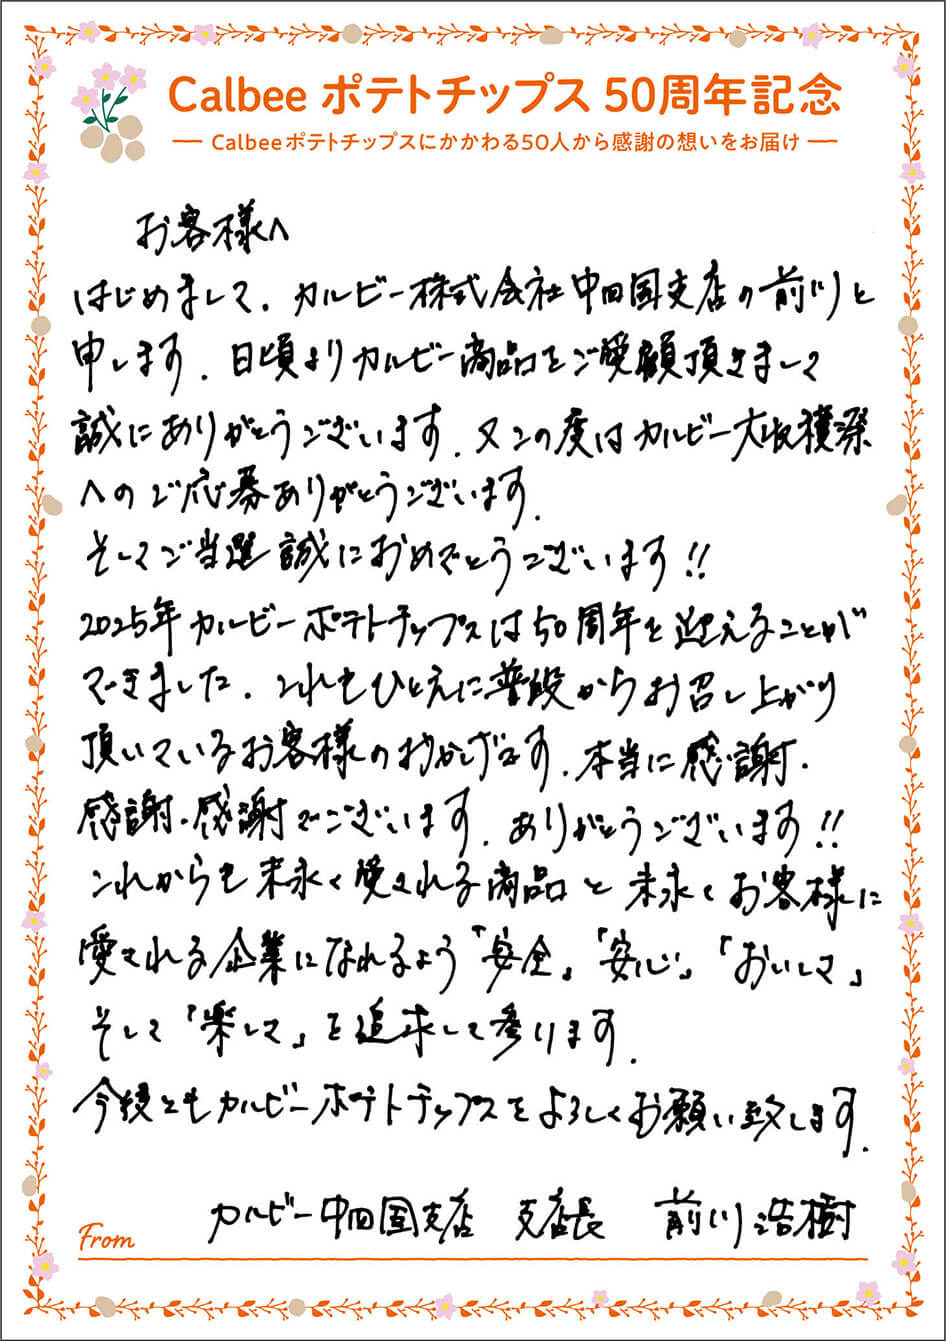 Calbee ポテトチップス 50周年記念
Calbeeポテトチップスにかかわる50人から感謝の想いをお届け
お客様へ
はじめまして、カルビー株式会社中四国支店の前川と
申します。日頃よりカルビー商品をご愛顧頂きまして
誠にありがとうございます。又この度はカルビー大収穫祭
へのご応募ありがとうございます。
そしてご当選誠におめでとうございます!!
2025年カルビーポテトチップスは50周年を迎えることが
できました。これもひとえに普段からお召し上がり
頂いているお客様のおかげです。本当に感謝・
感謝・感謝でございます。ありがとうございます!!
これからも末永く愛される商品と末永くお客様に
愛される企業になれるよう「安全」「安心」「おいしさ」
そして「楽しさ」を追求して参ります。
今後ともカルビーポテトチップスをよろしくお願い致します。
From カルビー中四国支店 支店長 前川浩樹